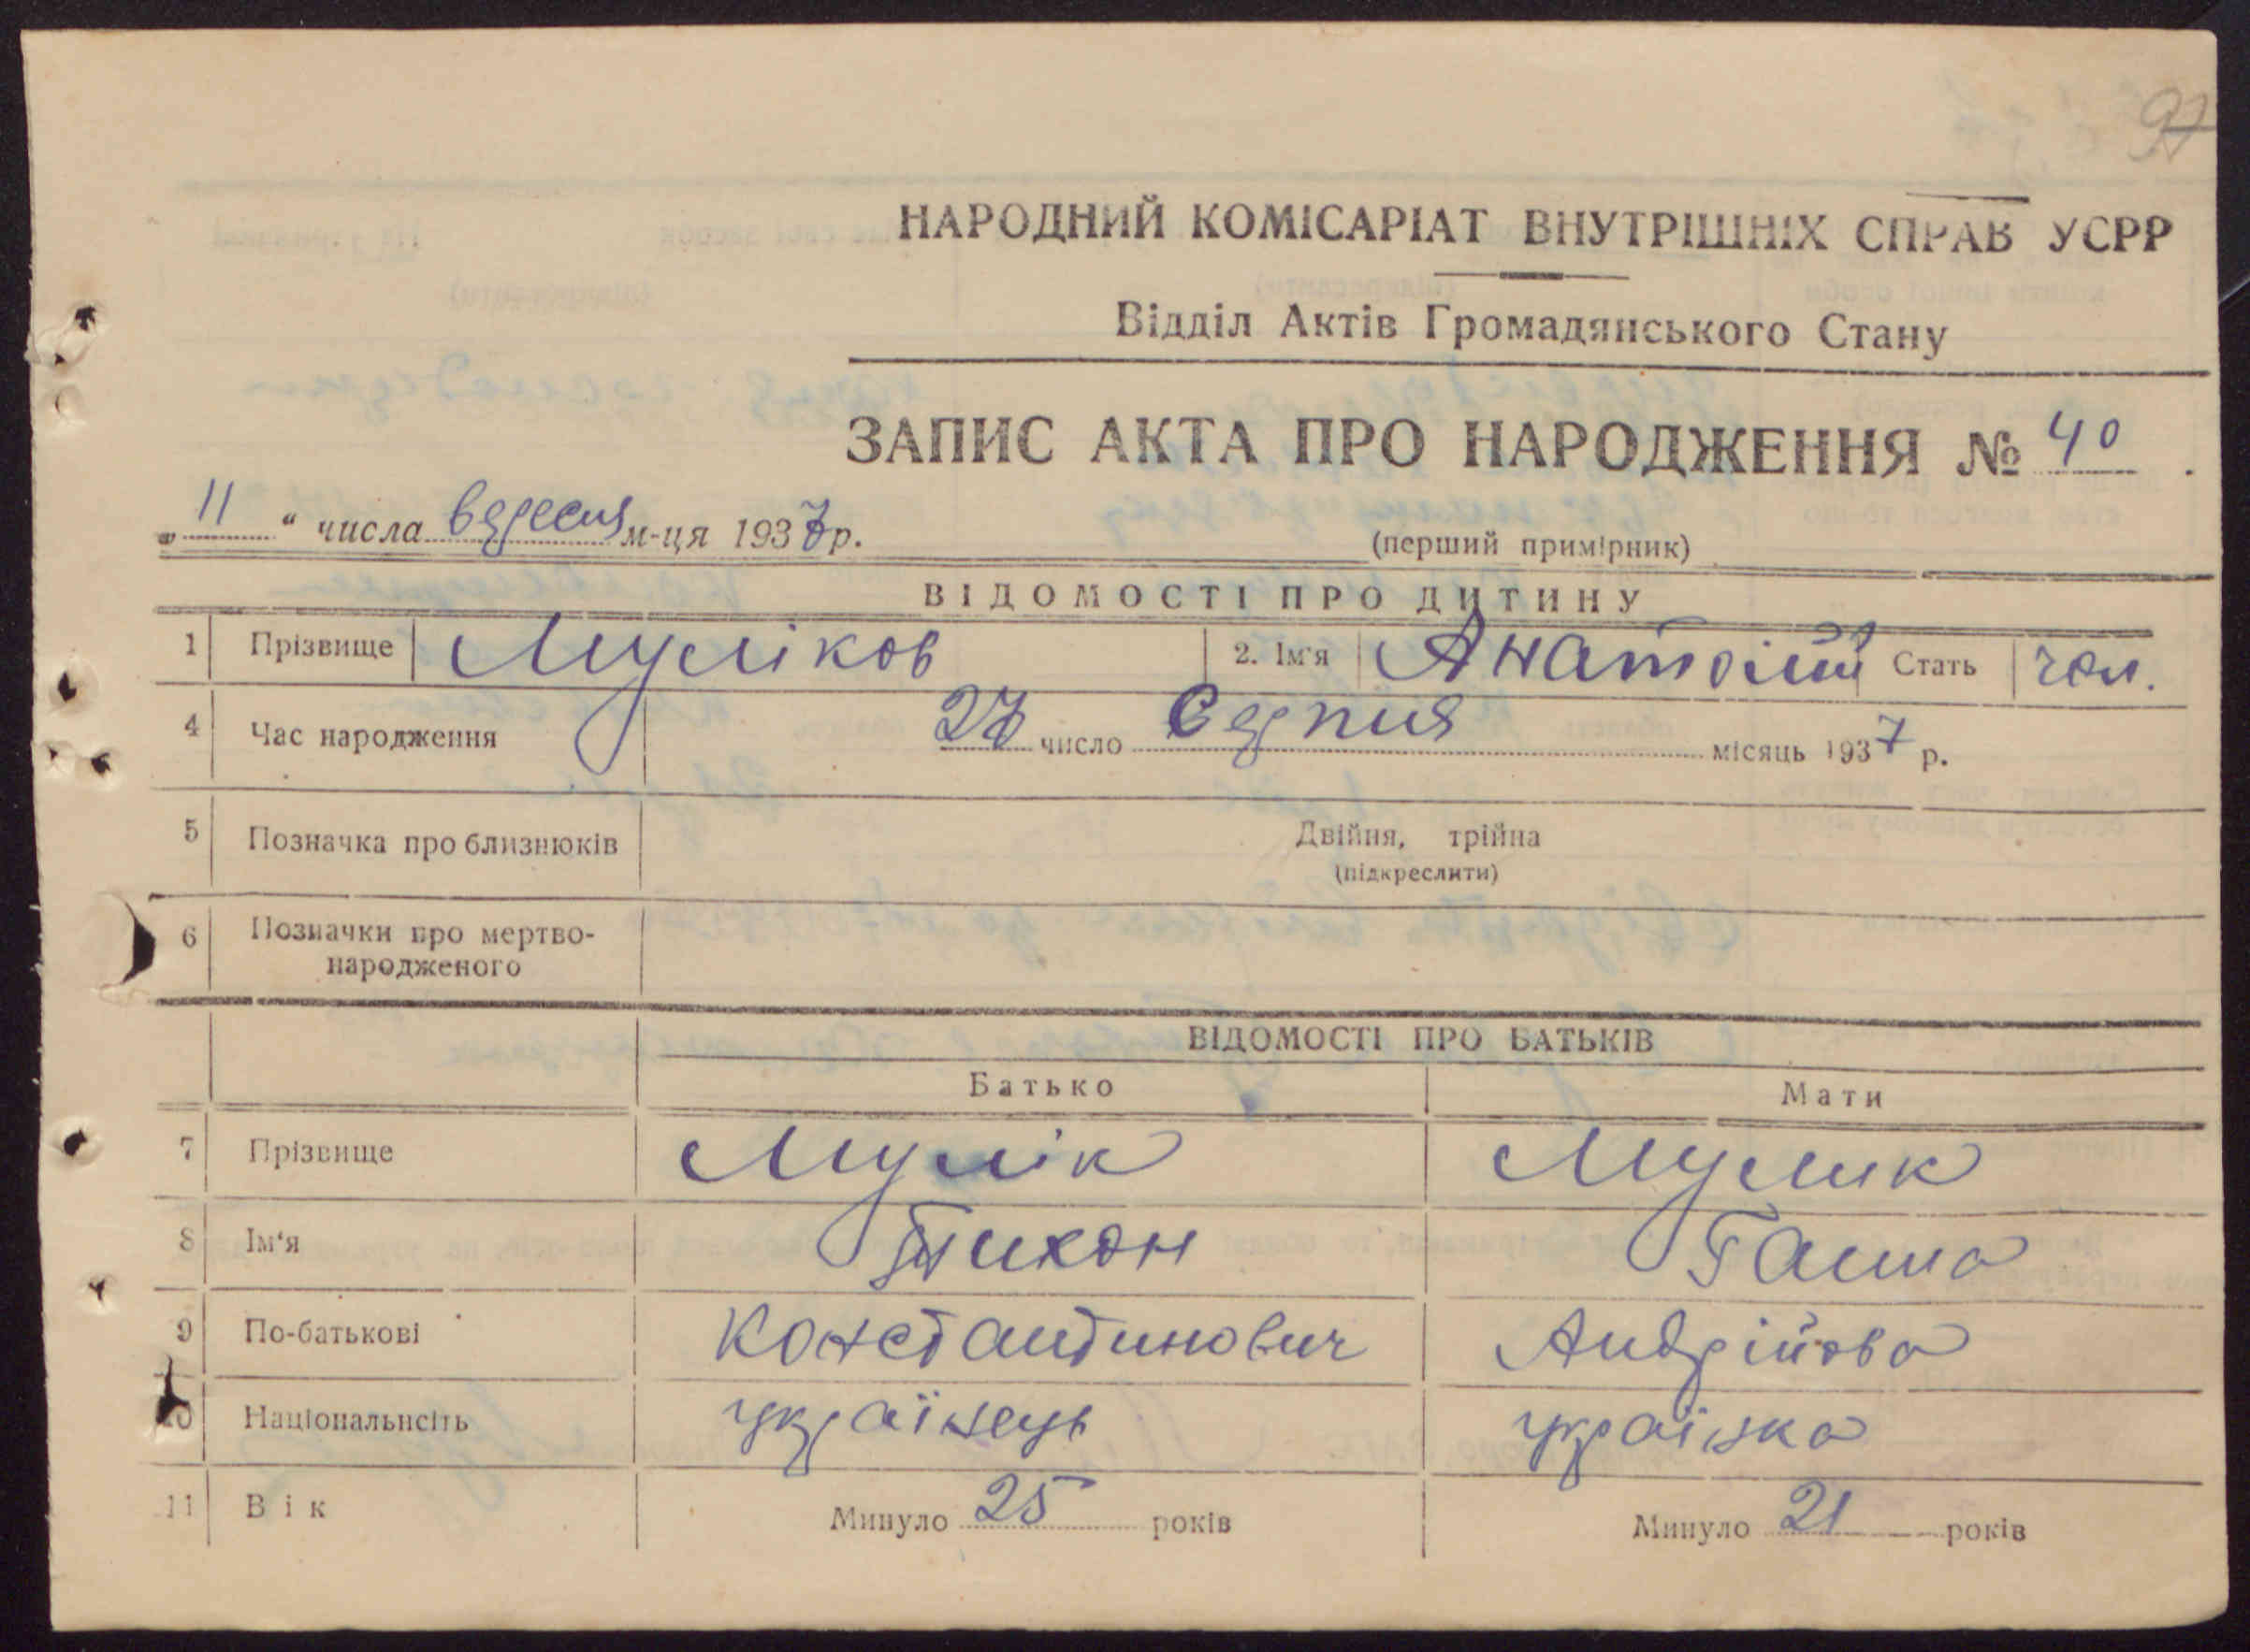 97
НАРОДНИЙ КОМІСАРІАТ ВНУТРІШНІХ СПРАВ УСРР
Відділ Актів Громадянського Стану
ЗАПИС АКТА ПРО НАРОДЖЕННЯ № 40
„ 11 “ числа вересня м-ця 1937 р.
(перший примірник)
ВІДОМОСТІ ПРО ДИТИНУ
1 Прізвище Муліков 2. Ім'я Анатолій Стать чол.
4 Час народження 27 число Серпня місяць 1937 р.
5 Позначка про близнюків Двійня, трійна
(підкреслити)
6 Позначки про мертво-
народженого
ВІДОМОСТІ ПРО БАТЬКІВ
Батько Мати
7 Прізвище Мулік Мулик
8 Ім'я Тихон Ганна
9 По-батькові Константинович Андрійова
10 Національнсіть українець українка
11 Вік Минуло 25 років Минуло 21 років